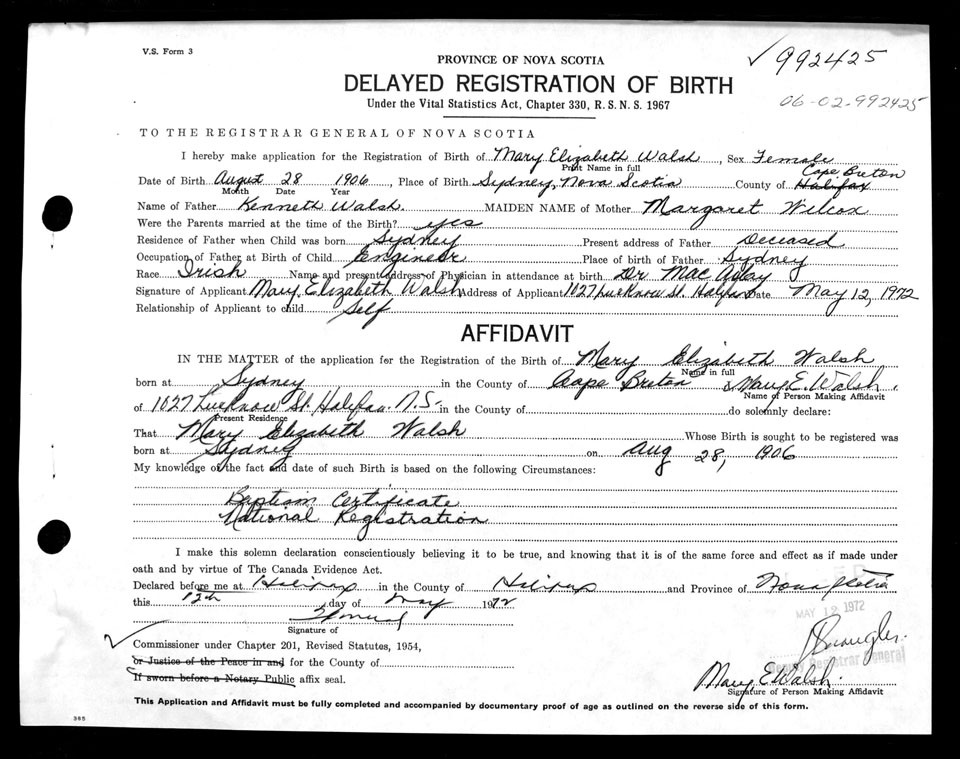 V.S. Form 3
992425
PROVINCE OF NOVA SCOTIA
DELAYED REGISTRATION OF BIRTH
06-02-992425
Under the Vital Statistics Act, Chapter 330, R.S.N.S. 1967
TO THE REGISTRAR GENERAL OF NOVA SCOTIA
I hereby make application for the Registration of Birth of Mary Elizabeth Walsh, Sex Female
Print Name in full
Cape Breton
Date of Birth August 28 1906, Place of Birth Sydney, Nova Scotia County of Halifax
Month Date Year
Name of Father Kenneth Walsh. MAIDEN NAME of Mother Margaret Wilcox
Were the Parents married at the time of the Birth? yes
Residence of Father when Child was born Sydney Present address of Father Deceased
Occupation of Father at Birth of Child Engineer Place of birth of Father Sydney
Race Irish Name and present Address of Physician in attendance at birth Dr
Signature of Applicant Mary Elizabeth Walsh Address of Applicant 1027 Lucknow St. Halifax Date May 12, 1972
Relationship of Applicant to child Self
AFFIDAVIT
IN THE MATTER of the application for the Registration of the Birth of Mary Elizabeth Walsh
Name in full
born at Sydney in the County of Cape Breton Mary E. Walsh.
Name of Person Making Affidavit
of 1027 Lucknow St. Halifax N.S. in the County of do solemnly declare:
Present Residence
That Mary Elizabeth Walsh Whose Birth is sought to be registered was
born at Sydney on Aug 28, 1906
My knowledge of the fact and date of such Birth is based on the following Circumstances:
Baptism Certificate
National Registration
I make this solemn declaration conscientiously believing it to be true, and knowing that it is of the same force and effect as if made under
oath and by virtue of The Canada Evidence Act.
Declared before me at Halifax in the County of Halifax and Province of Nova Scotia
this 12th day of May 1972
MAY 12 1972
Signature of
Commissioner under Chapter 201, Revised Statutes, 1954,
or Justice of the Peace in and for the County of
Deputy Registrar General
If sworn before a Notary Public affix seal.
Mary E Walsh.
Signature of Person Making Affidavit
This Application and Affidavit must be fully completed and accompanied by documentary proof of age as outlined on the reverse side of this form.
365